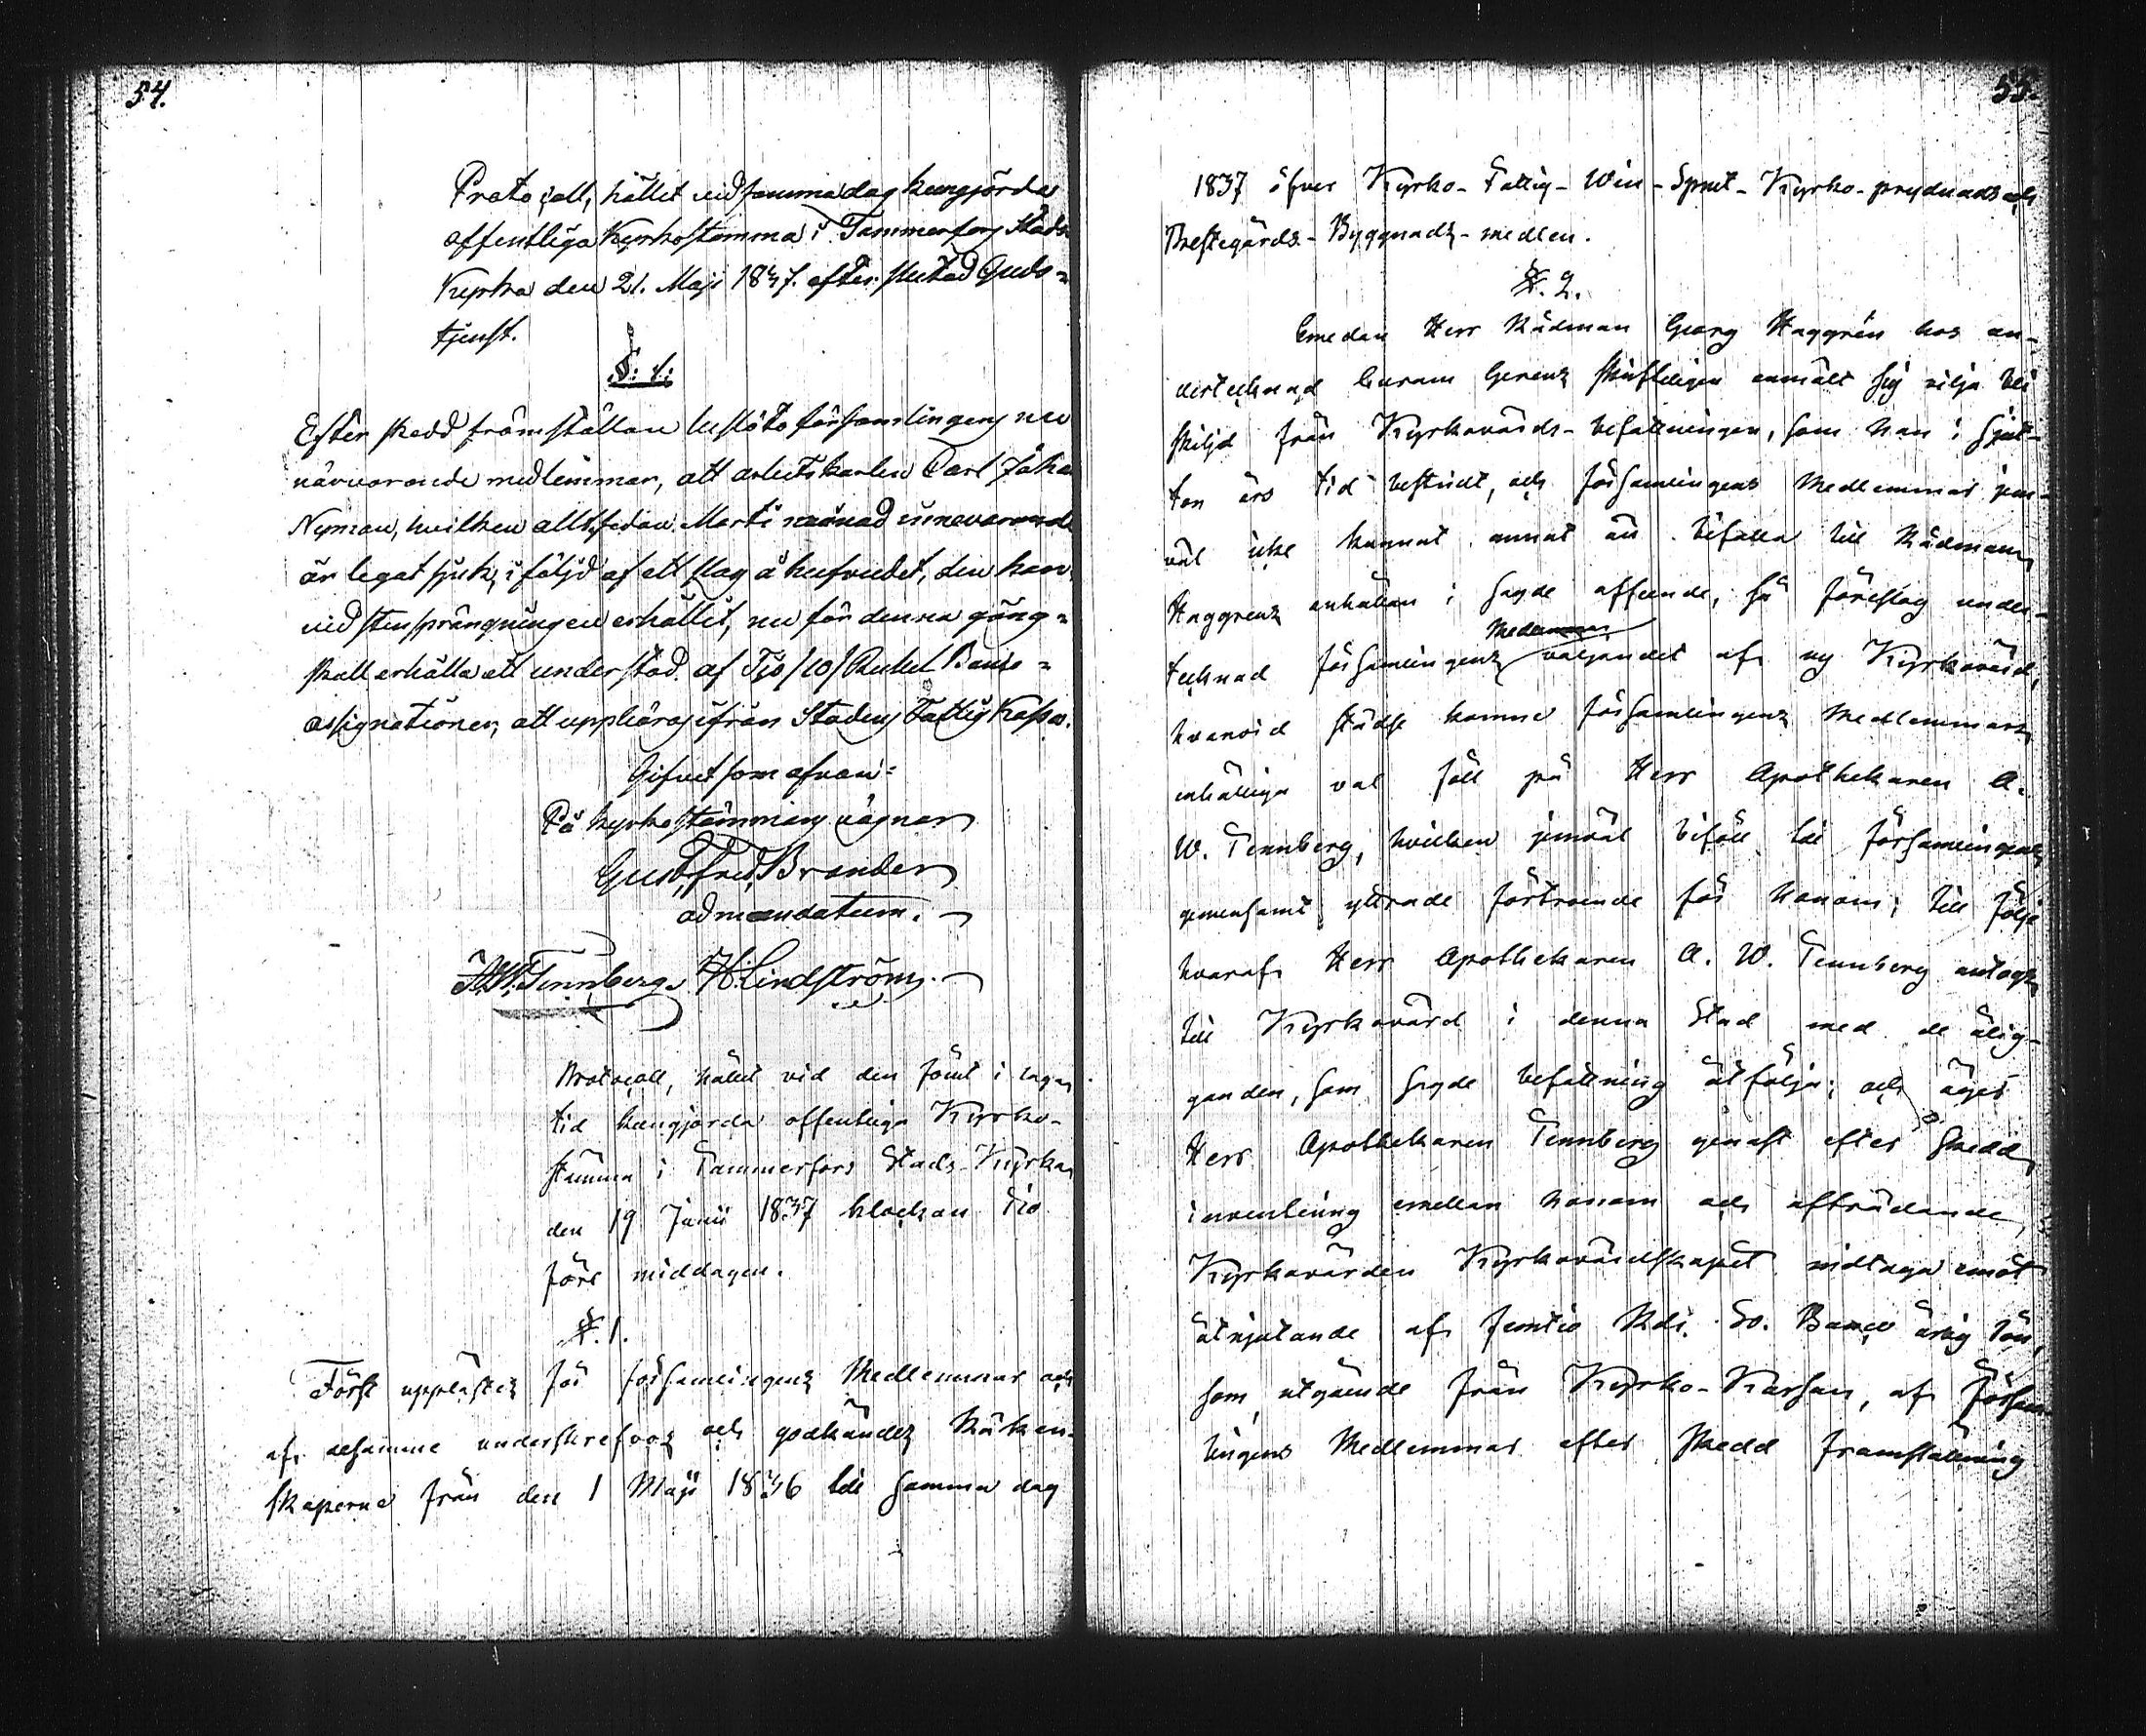 54.
Protocoll, hållet vid samma dag kungjorda
offentliga Kyrkostämma i Tammerfors Stads
Kyrka den 21. Maji 1837. efter slutad Guds=
tjenst.
§: 1:
Efter skedd framställan beslöto församlingens nu
närvarande medlemmar, att arbetskarlen Carl Johan
Nyman, hvilken allt sedan Martii månad innevarande
år legat sjuk, i följd af ett slag å hufvudet, den han
vid stensprängningen erhållit, nu för denna gång=
skall erhålla ett understöd af Tjo /10/ Rubel Banco=
assignationer, att uppbäras ifrån Stadens Fattig Kassa.
Gifvet som ofvan=
På kyrkostämmans vägnar
Gust. Fred. Brander
ad mandatum.
A. W. Tennberg. H. Lindström.
Protocoll, hållit vid den förut i laga
tid kungjorda offentliga Kyrko-
stämma i Tammerfors Stads Kyrka
den 19 Junii 1837 klockan Tio
före middagen.
§. 1.
Först upplästes för församlingens Medlemmar och
af densamme underskrefvos och godkändes Räken-
skaperne från den 1 Maji 1836 till samma dag
55.
1837 öfver Kyrko- Fattig- Vin- Sprut- Kyrko-prydnads och
Prestegårds- Byggnads- medlen.
§. 2.
Emedan Herr Rådman Georg Haggrén hos un-
dertecknad Curam Gerens skriftligen anmält sig vilja bli
skiljd från Kyrkovärds- befattningen, som han i sjut-
ton års tid bestridt, och församlingens Medlemmar jem-
väl icke kunnat annat än bifalla till Rådman
Haggrens anhållan i sagde afseende, så föreslog under-
tecknad församlingens valjandet af ny Kyrkovärd,
hvarvid städse samma församlingens Medlemmars
enhälliga val föll på Herr Apothekaren A.
W. Tennberg, hvilken jemväl biföll till församlingens
gemensamt yttrade förtroende för honom; till följe
hvaraf Herr Apothekaren A. W. Tennberg antogs
till Kyrkovärd i denna Stad med de ålig-
ganden, som sagde befattning åtfölja; och äger
Herr Apothekaren Tennberg genast efter skedd
inventering emellan honom och afträdande
Kyrkovärden Kyrkovärdskapet vidtaga emot
åtnjutande af femtio Rdr. Sv. Banco årlig lön,
som utgående från Kyrko-Kassan, af försam-
lingens Medlemmar efter skedd framställning